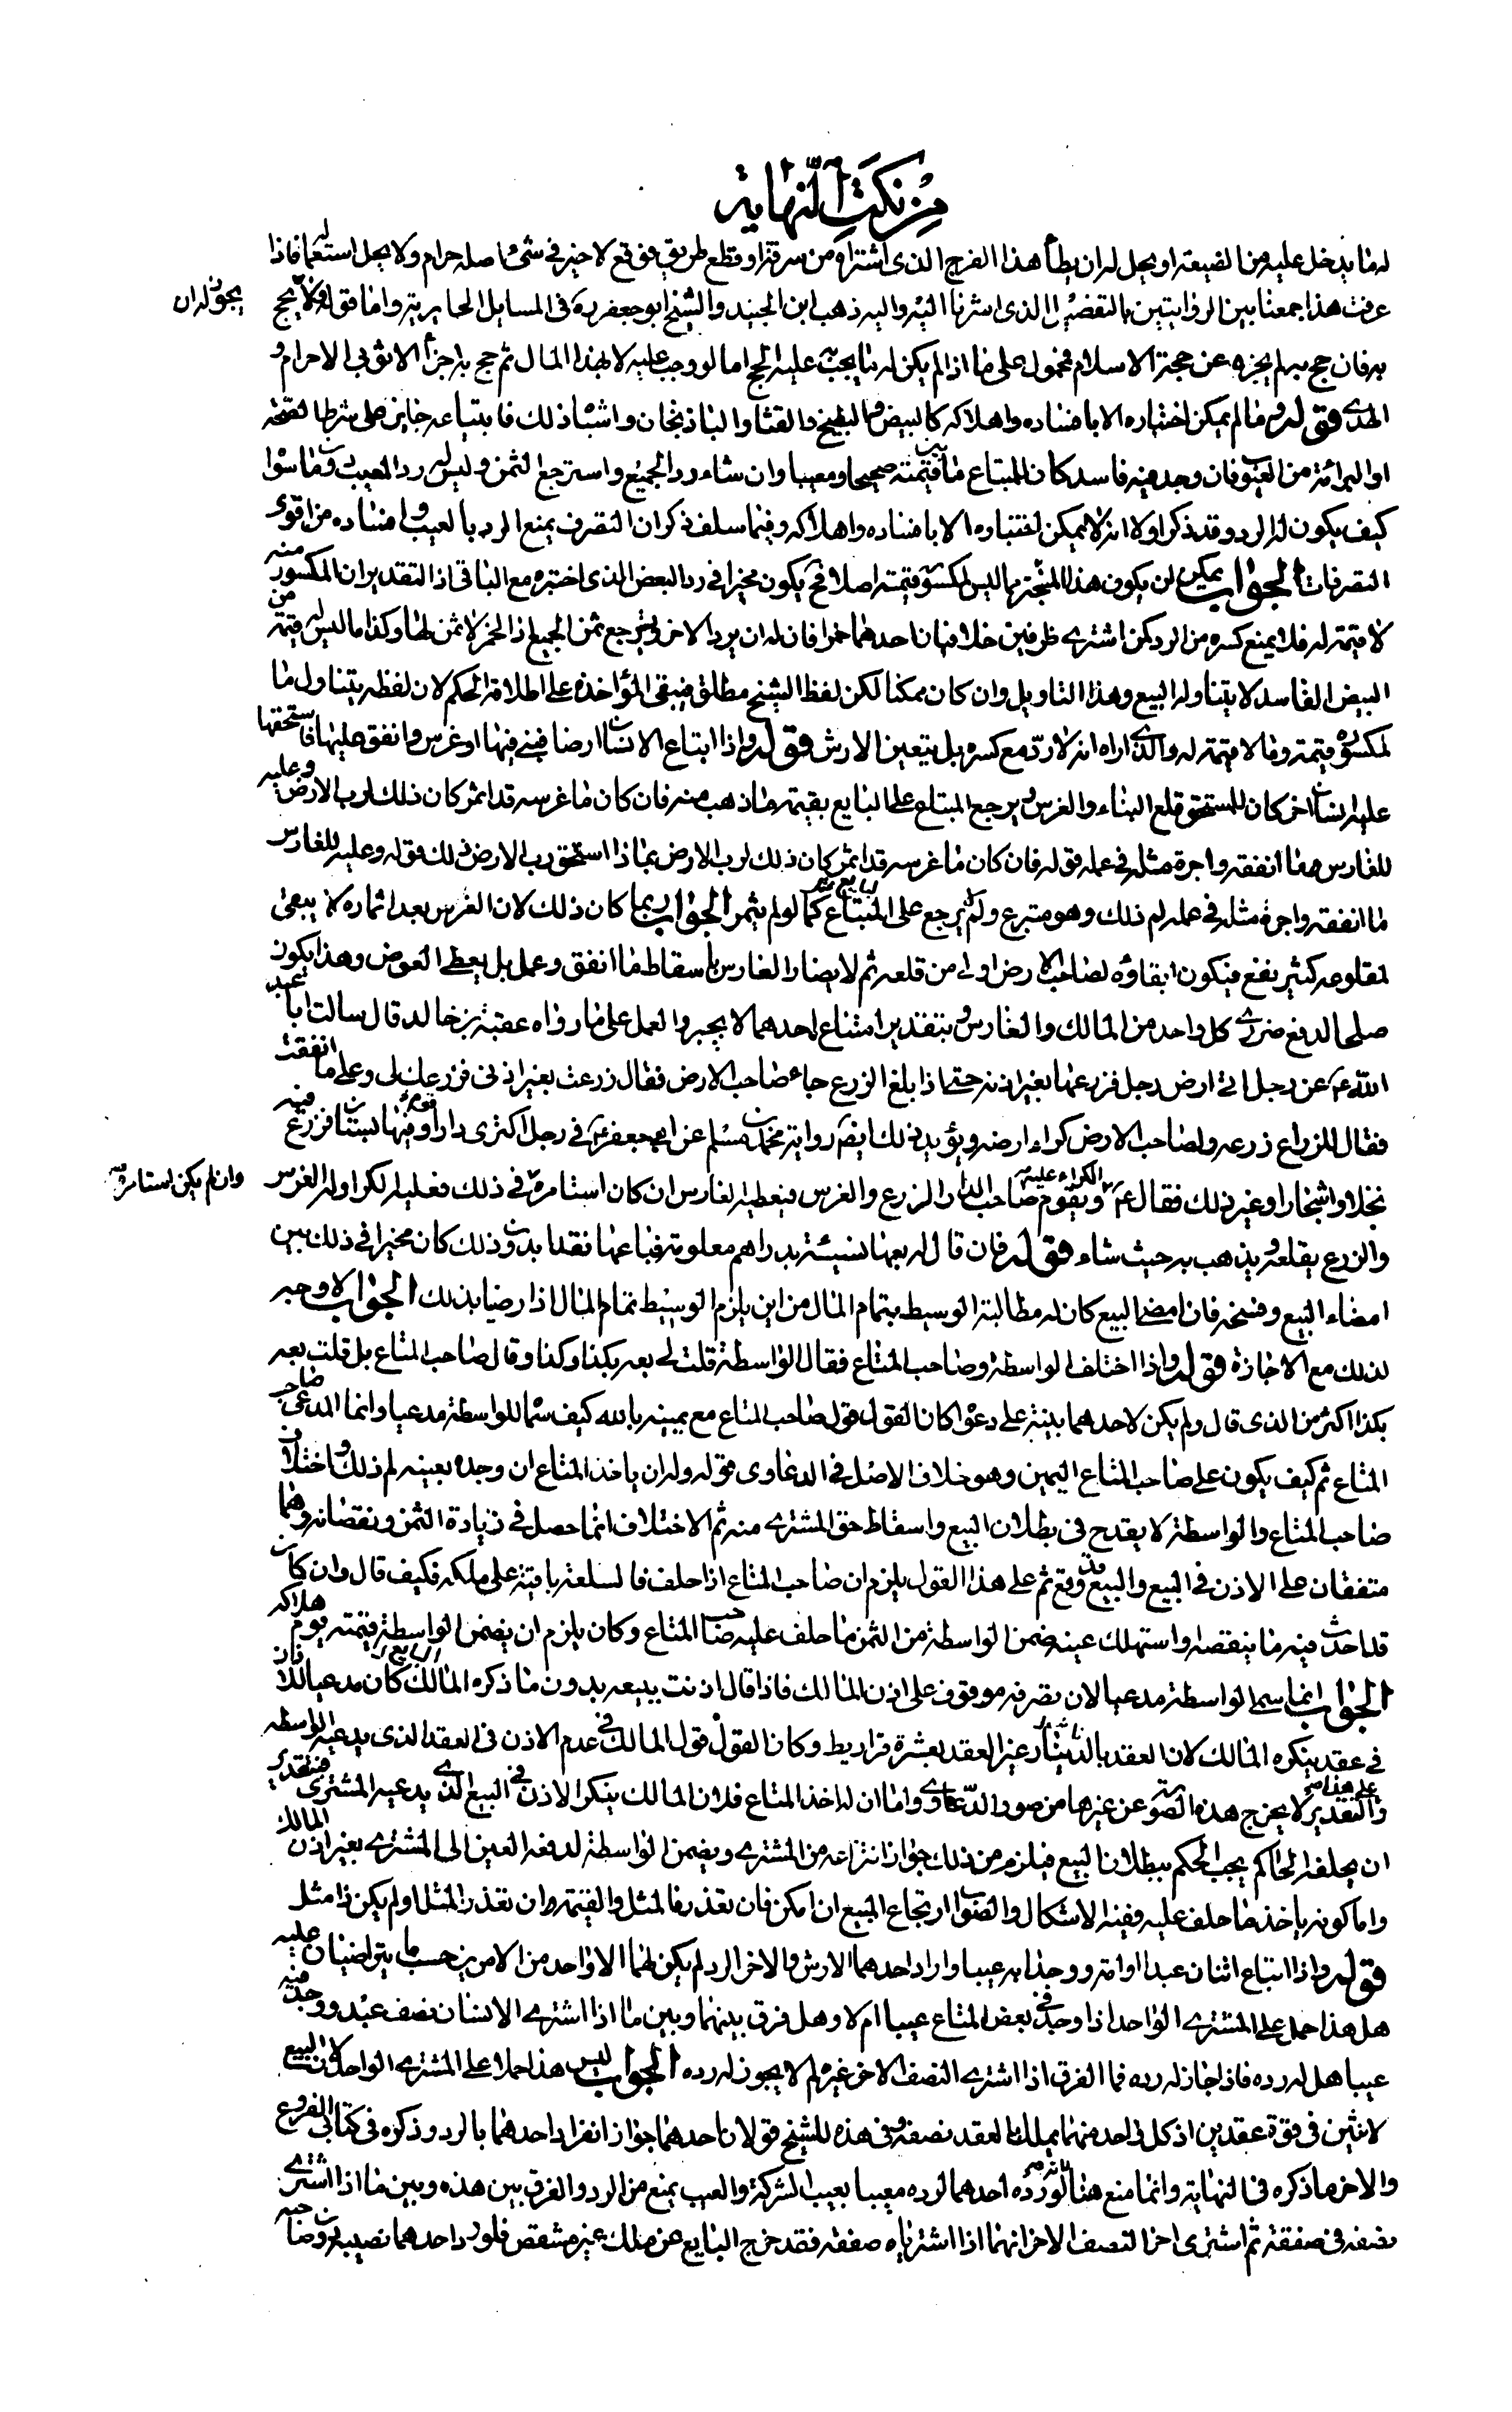 من نكت النهاية
له ما يدخل عليه من الضيعة او يحل له ان يطأ هذا الفرج الذى اشتراه من سرقة او قطع طريق فوقع لا خير فى شئ اصله حرام ولا يحل استعماله فاذا
عرفت هذا جمعنا بين الروايتين بالتفصيل الذى اشرنا اليه واليه ذهب ابن الجنيد والشيخ ابو جعفر ره فى المسايل الحايرية واما قوله ولا يحج
يجوز له ان
به فان حج به لم يجزه عن حجة الاسلام فمحمول على ما اذا لم يكن له ما يجب به عليه الحج اما لو وجب عليه لا بهذا المال ثم حج به اجزأ الا ثوبى الاحرام و
الهدى قوله وما لم يمكن اختباره الا بافساده واهلاكه كالبيض والبطيخ والقثا والباذنجان واشباه ذلك فابتياعه جايز على شرط الصحة
او البرائة من العيوب فان وجد فيه فاسد كان للمبتاع ما بين قيمته صحيحا ومعيبا وان شاء رد الجميع واسترجع الثمن وليس له رد المعيب وما سوا
كيف يكون له الرد وقد ذكر اولا انه لا يمكن اختباره الا بافساده واهلاكه وفيما سلف ذكر ان التصرف يمنع الرد بالعيب وافساده من اقوى
التصرفات الجواب يمكن ان يكون هذا المتجر مما ليس لمكسوره قيمة اصلا فح يكون مخيرا فى رد البعض الذى اختبره مع الباقى اذ التقدير ان المكسور منه
لا قيمة له فلا يمنع كسره من الرد كمن اشترى ظرفين خلا فبان احدهما خمرا فان له ان يرد الاخر ويرجع بثمن الجميع اذ الخمر لا ثمن لها وكذا ما ليس له قيمة من
البيض الفاسد لا يتناوله البيع وهذا التاويل وان كان ممكنا لكن لفظ الشيخ مطلق فيبقى المؤاخذة على اطلاقه الحكم لان لفظه يتناول ما
لمكسوره قيمة وما لا قيمة له والذى اراه انه لا رد مع كسره بل يتعين الارش قوله واذا ابتاع الانسان ارضا فبنى فيها او غرس وانفق عليها فاستحقها
عليه انسان اخر كان للمستحق قلع البناء والغرس ويرجع المبتاع على البايع بقيمة ما ذهب منه فان كان ما غرسه قد اثمر كان ذلك لرب الارض وعليه
للغارس ما انفقه واجرة مثله فى عمله قوله فان كان ما غرسه قد اثمر كان ذلك لرب الارض بماذا استحق رب الارض ذلك قوله وعليه للغارس
ما انفقه واجرة مثله فى عمله لم ذلك وهو متبرع ولم لا يرجع على البايع كما لو لم يثمر الجواب ربما كان ذلك لان الغرس بعد اثماره لا يبقى
لمقلوعه كثير نفع فيكون ابقاؤه لصاحب الارض اولى من قلعه ثم لا يضار الغارس باسقاط ما انفق وعمل بل يعطى العوض وهذا يكون
صلحا لدفع ضررى كل واحد من المالك والغارس وبتقدير امتناع احدهما لا يجبر والعمل على ما رواه عقبة بن خالد قال سالت ابا عبد
الله ع عن رجل اتى ارض رجل فزرعها بغير اذنه حتى اذا بلغ الزرع جاء صاحب الارض فقال زرعت بغير اذنى فزرعك لى وعلى ما انفقت
فقال للزراع زرعه ولصاحب الارض كراء ارضه ويؤيد ذلك ايضا رواية محمد بن مسلم عن ابى جعفر ع فى رجل اكترى دارا وفيها بستان فزرع فيه
نخلا واشجارا او غير ذلك فقال ع عليه الكراء ويقوم صاحب الدار الزرع والغرس فيعطيه الغارس ان كان استامره فى ذلك فعليه الكراء وله الغرس
وان لم يكن استامره
والزرع يقلعه ويذهب به حيث شاء قوله فان قال له بعها نسيئة بدراهم معلومة فباعها نقدا بدون ذلك كان مخيرا فى ذلك بين
امضاء البيع وفسخه فان امضى البيع كان له مطالبة الوسيط بتمام المال من اين يلزم الوسيط تمام المال اذا رضيا بذلك الجواب لا وجه
لذلك مع الاجازة قوله واذا اختلف الواسطة وصاحب المتاع فقال الواسطة قلت لى بعه بكذا وكذا وقال صاحب المتاع بل قلت بعه
بكذا اكثر من الذى قال ولم يكن لاحدهما بينة على دعواه كان القول قول صاحب المتاع مع يمينه بالله كيف سما الواسطة مدعيا وانما المدعى صاحب
المتاع ثم كيف يكون على صاحب المتاع اليمين وهو خلاف الاصل فى الدعاوى قوله وله ان ياخذ المتاع ان وجده بعينه لم ذلك واختلاف
صاحب المتاع والواسطة لا يقدح فى بطلان البيع واسقاط حق المشترى منه ثم الاختلاف انما حصل فى زيادة الثمن ونقصانه وهما
متفقان على الاذن فى البيع والبيع قد وقع ثم على هذا القول يلزم ان صاحب المتاع اذا حلف فالسلعة باقية على ملكه فكيف قال وان كان
قد احدث فيه ما ينقصه او استهلك عينه ضمن الواسطة من الثمن ما حلف عليه صاحب المتاع وكان يلزم ان يضمن الواسطة قيمته يوم هلاكه
الجواب انما سمى الواسطة مدعيا لان تصرفه موقوف على اذن المالك فاذا قال اذنت ببيعه بدون ما ذكره المالك كان مدعيا للاذن
فى عقد ينكره المالك لان العقد بالدينار غير العقد بعشرة قراريط وكان القول قول المالك فى عدم الاذن فى العقد الذى يدعيه الواسطه
وعلى هذا التقدير لا يخرج هذه الصورة عن غيرها من صور الدعاوى واما ان له اخذ المتاع فلان المالك ينكر الاذن فى البيع الذى يدعيه المشترى فبتقدير
ان يحلفه الحاكم يجب الحكم ببطلان البيع فيلزم من ذلك جواز انتزاعه من المشترى ويضمن الواسطة لدفعه العين الى المشترى بغير اذن المالك
واما كونه ياخذ ما حلف عليه ففيه الاشكال والصواب ارتجاع المبيع ان امكن فان تعذر فالمثل والقيمة وان تعذر المثل او لم يكن ذا مثل
قوله واذا ابتاع اثنان عبدا او امة ووجدا به عيبا واراد احدهما الارش والاخر الرد لم يكن لهما الا واحد من الامرين حسب ما يتراضيان عليه
هل هذا حمل على المشترى الواحد اذا وجد فى بعض المتاع عيبا ام لا وهل فرق بينهما وبين ما اذا اشترى الانسان نصف عبد ووجد فيه
عيبا هل له رده فاذا جاز له رده فما الفرق اذا اشترى النصف الاخر غيره لم لا يجوز له رده الجواب ليس هذا حملا على المشترى الواحد لان البيع
لاثنين فى قوة عقدين اذ كل واحد منهما يملك بالعقد نصفه وفى هذه للشيخ قولان احدهما جواز انفراد احدهما بالرد وذكره فى كتابى الفروع
والاخر ما ذكره فى النهاية وانما منع هنا لانه لو رده احدهما لرده معيبا بعيب الشركة والعيب يمنع من الرد والفرق بين هذه وبين ما اذا اشترى
نصفه فى صفقة ثم اشترى اخر النصف الاخر انهما اذا اشترياه صفقة فقد خرج البايع عن ملك غير مشقص فلو رد احدهما نصيبه وصاحبه